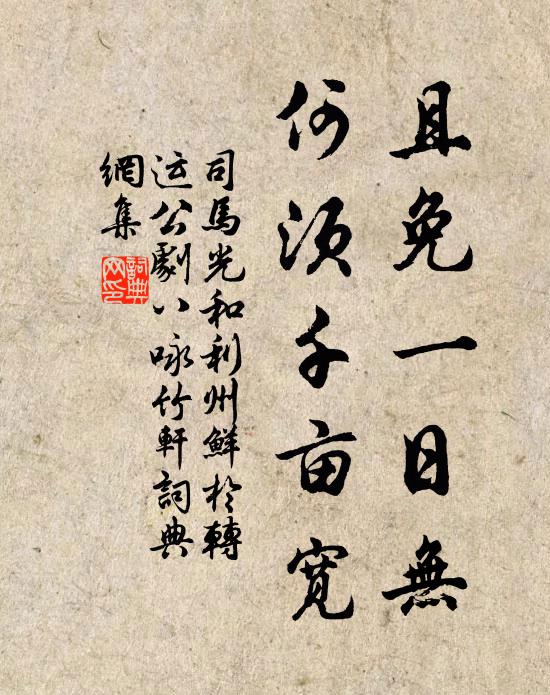 且免一日無
何須千亩寬
司馬光和利州鮮於轉
运公劇八咏竹軒詞典
網集
詞典网印